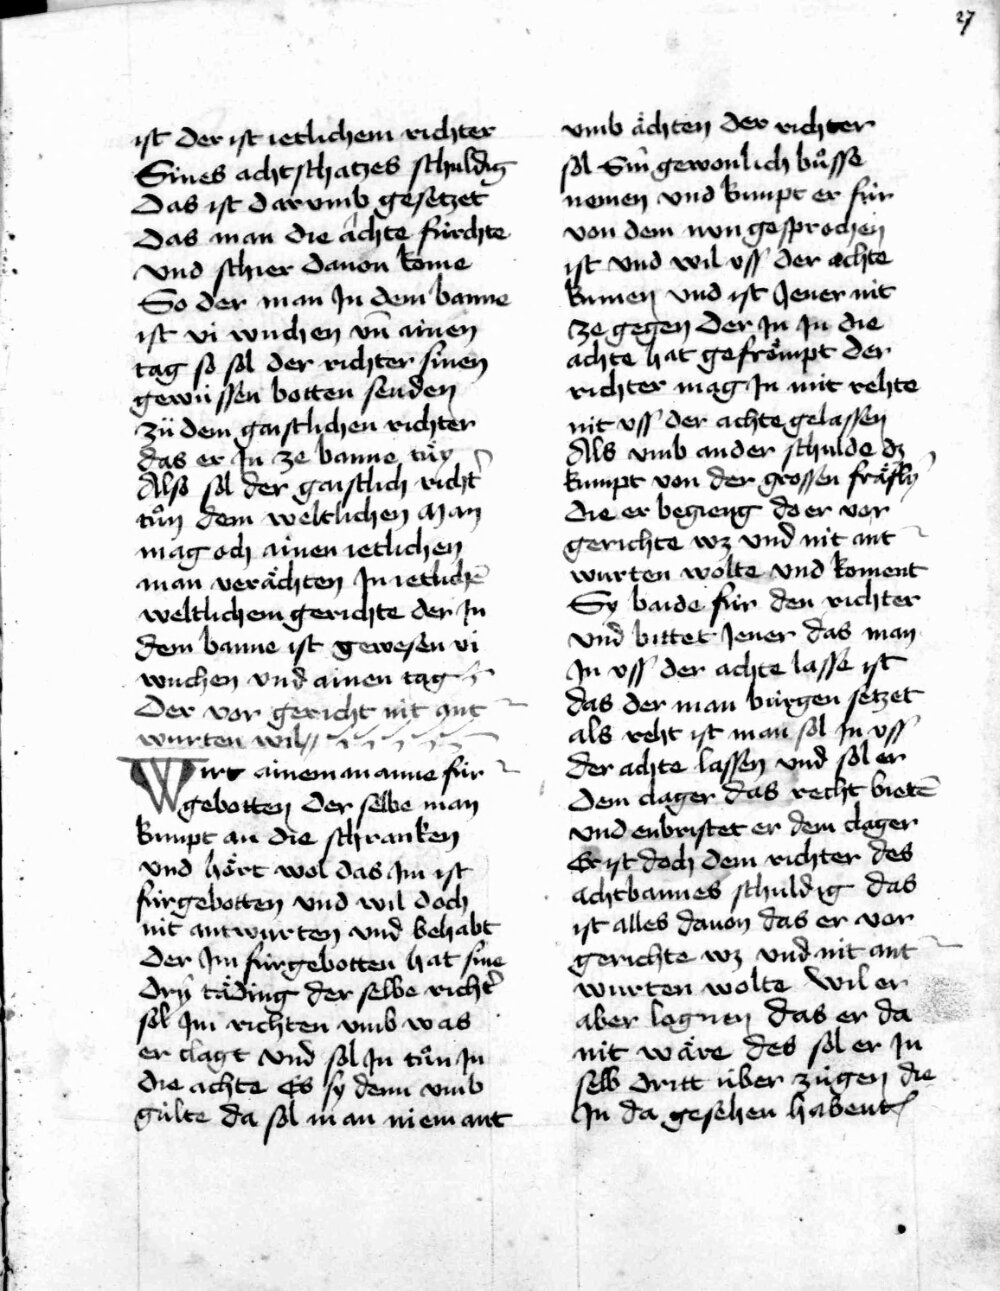 27
ist der ist ietlichem richter
Sines achtschatzes schuldig
Das ist darumb gesetzet
Das man die ächte fürchte
und schier dauon kome
So der man Jn dem banne
ist vi wuchen vn̄ ainen
tag so sol der richter sinen
gewüssen botten senden
zü dem gaistlichen richter
das er Jn ze banne tüy
Also sol der gaistlich richt͛
tůn dem weltlichen Man
mag och ainen ietlichen
man verächten Jn ietlichē
weltlichem gerichte der Jn
dem banne ist gewesen vi
wuchen vnd ainen tag
Der vor gericht nit ant
wurten wil
Wirt ainem manne für
gebotten Der selbe man
kumpt an die schranken
vnd hört wol das Jm ist
fürgebotten vnd wil doch
nit antwürten vnd behabt
Der Jm fürgebotten hat sine
dry täding der selbe richt͛
sol Jm richten vmb was
er clagt vnd sol Jn tůn Jn
die achte Es sy denn vmb
gülte da sol man niemant
vmb ächten der richter
sol Sin̄ gewonlich bůsse
nemen vnd kumpt er für
von dem nun gesprochen
ist vnd wil vss der achte
kumen vnd ist Jener nit
ze gegen Der Jn Jn die
achte hat gefrömpt der
richter mag Jn mit rehte
nit vss der achte gelassen
Als vmb ander schulde dz
kumpt von der grossen fräfly
die er begieng do er vor
gerichte wz vnd nit ant
wurten wolte vnd koment
Sy baide für den richter
vnd bittet Jener das man
Jn vss der achte lasse ist
das der man bürgen setzet
als reht ist man sol Jn vss
der achte lassen vnd sol er
Dem clager das recht bietē
vnd enbristet er dem clager
Er ist doch dem richter des
achtbannes schuldig das
ist alles dauon das er vor
gerichte wz vnd nit ant
wurten wolte Wil er
aber lognen das er da
nit wäre des sol er Jn
selb dritt über zügen die
Jn da gesehen habent